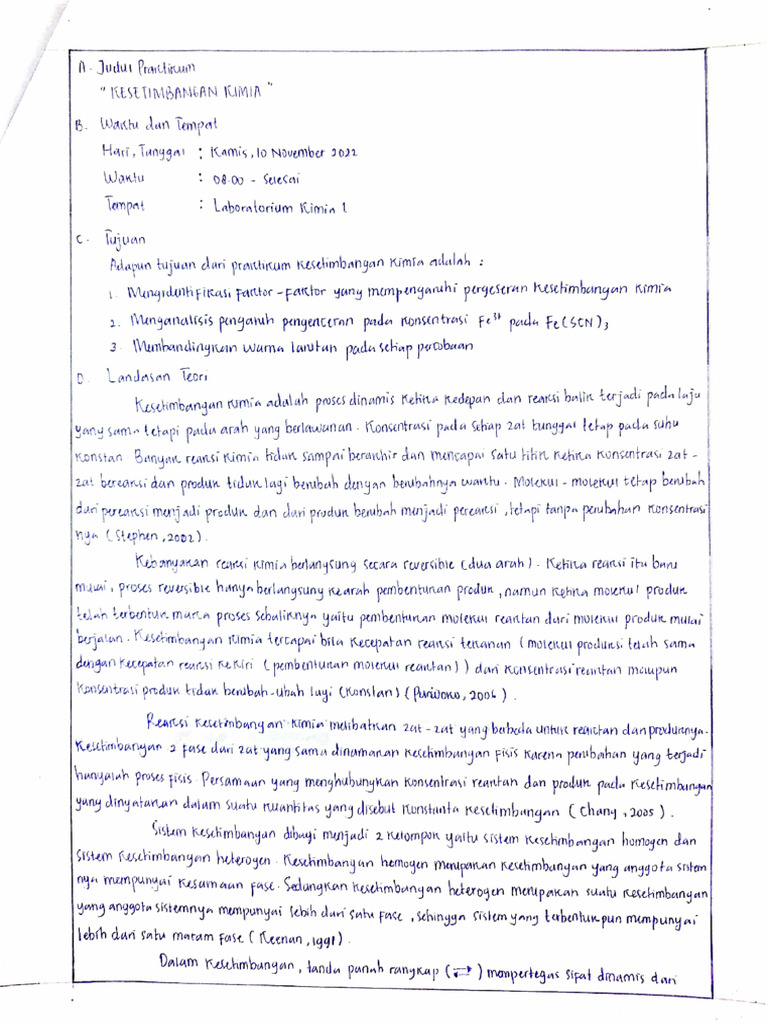 A. Judul Praktikum
"KESETIMBANGAN KIMIA"
B. Waktu dan Tempat
Hari, Tanggal : Kamis, 10 November 2022
Waktu : 08.00 - Selesai
Tempat : Laboratorium Kimia 1
C. Tujuan
Adapun tujuan dari praktikum kesetimbangan kimia adalah :
1. Mengidentifikasi faktor-faktor yang mempengaruhi pergeseran kesetimbangan kimia
2. Menganalisis pengaruh pengenceran pada konsentrasi Fe³⁺ pada Fe(SCN)₃
3. Membandingkan warna larutan pada setiap percobaan
D. Landasan Teori
Kesetimbangan kimia adalah proses dinamis ketika kedepan dan reaksi balik terjadi pada laju
yang sama tetapi pada arah yang berlawanan. Konsentrasi pada setiap zat tunggal tetap pada suhu
konstan Banyak reaksi kimia tidak sampai berakhir dan mencapai satu titik ketika konsentrasi zat-
zat bereaksi dan produk tidak lagi berubah dengan berubahnya waktu. Molekul-molekul tetap berubah
dari pereaksi menjadi produk dan dari produk berubah menjadi pereaksi, tetapi tanpa perubahan konsentrasi
nya (Stephen, 2002).
Kebanyakan reaksi kimia berlangsung secara reversible (dua arah). Ketika reaksi itu baru
mulai, proses reversible hanya berlangsung kearah pembentukan produk, namun ketika molekul produk
telah terbentuk maka proses sebaliknya yaitu pembentukan molekul reaktan dari molekul produk mulai
berjalan. Kesetimbangan kimia tercapai bila kecepatan reaksi kekanan (molekul produksi telah sama
dengan kecepatan reaksi kekiri (pembentukan molekul reaktan)) dari konsentrasi reaktan maupun
konsentrasi produk tidak berubah-ubah lagi (konstan) (Purwoko, 2006).
Reaksi kesetimbangan kimia melibatkan zat-zat yang berbeda untuk reaktan dan produknya.
Kesetimbangan 2 fase dari zat yang sama dinamakan kesetimbangan fisis karena perubahan yang terjadi
hanyalah proses fisis. Persamaan yang menghubungkan konsentrasi reaktan dan produk pada kesetimbangan
yang dinyatakan dalam suatu kuantitas yang disebut konstanta kesetimbangan (Chang, 2005).
Sistem kesetimbangan dibagi menjadi 2 kelompok yaitu sistem kesetimbangan homogen dan
sistem kesetimbangan heterogen. Kesetimbangan homogen merupakan kesetimbangan yang anggota sistem
nya mempunyai kesamaan fase. Sedangkan kesetimbangan heterogen merupakan suatu kesetimbangan
yang anggota sistemnya mempunyai lebih dari satu fase, sehingga sistem yang terbentuk pun mempunyai
lebih dari satu macam fase (Keenan, 1991).
Dalam kesetimbangan, tanda panah rangkap (⇄) mempertegas sifat dinamis dari